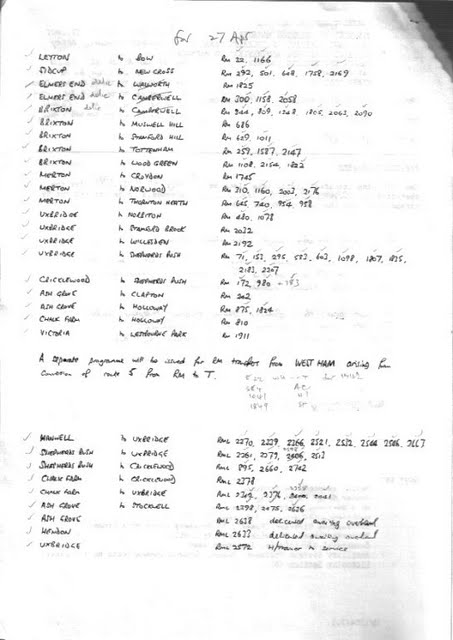 for 27 Apr
LEYTON to BOW RM 22, 1166
SIDCUP to NEW CROSS RM 292, 501, 608, 1758, 2169
ELMERS END to WALWORTH RM 1825
ELMERS END to CAMBERWELL RM 300, 1158, 2058
BRIXTON to CAMBERWELL RM 1805, 2063, 2090
BRIXTON to MUSWELL HILL RM 686
BRIXTON to STAMFORD HILL RM 629, 1011
BRIXTON to TOTTENHAM RM 259, 1587, 2147
BRIXTON to WOOD GREEN RM 1108, 2154, 1822
MERTON to CROYDON RM 1745
MERTON to NORWOOD RM 310, 1160, 2003, 2176
MERTON to THORNTON HEATH RM 645, 740, 954, 958
UXBRIDGE to NORBITON RM 480, 1078
UXBRIDGE to STAMFORD BROOK RM 2032
UXBRIDGE to WILLESDEN RM 2192
UXBRIDGE to SHEPHERDS BUSH RM 71, 153, 295, 583, 603, 1098, 1807, 1835,
2183, 2207
CRICKLEWOOD to SHEPHERDS BUSH RM 172, 980 + 183
ASH GROVE to CLAPTON RM 202
ASH GROVE to HOLLOWAY RM 875, 1824
CHALK FARM to HOLLOWAY RM 810
VICTORIA to WESTBOURNE PARK RM 1911
A separate programme will be issued for RM transfers from WEST HAM arising from
conversion of route 5 from RM to T.
HANWELL to UXBRIDGE RML 2270, 2329, 2366, 2521, 2532, 2544, 2586, 2667
SHEPHERDS BUSH to UXBRIDGE RML 2261, 2279, 2406, 2513
SHEPHERDS BUSH to CRICKLEWOOD RML 895, 2660, 2742
CHALK FARM to CRICKLEWOOD RML 2378
CHALK FARM to UXBRIDGE RML 2376
ASH GROVE to STOCKWELL RML 2398, 2075, 2626
ASH GROVE RML 2628 delicensed awaiting overhaul
HENDON RML 2633 delicensed awaiting overhaul
UXBRIDGE RML 2572 to service